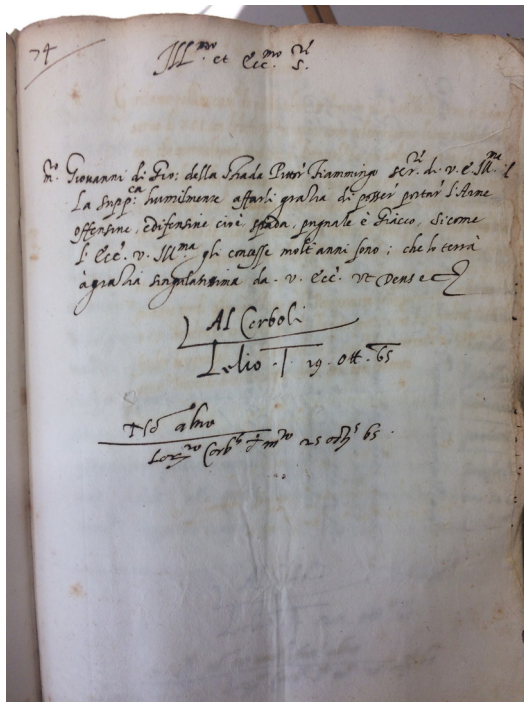 74
Ill.mo et Ecc.mo S.re
m.ro Giovanni di Gio: della Strada Pittor Fiammingo ser.re di v. E. Ill.ma
la supp.ca humilmente affarli gratia di posser portar l'Arme
offensive, e difensive cioè spada, pugnale è Giacco, si come
l' Ecc.a v. Ill.ma gli concesse molt'anni sono; che lo terrà
à gratia singularissima da . v. Ecc.a Ut Deus etc
Al Corboli
Lelio . T. 19. Ott. 65
No altro
Lor.zo Corb.li 25 65